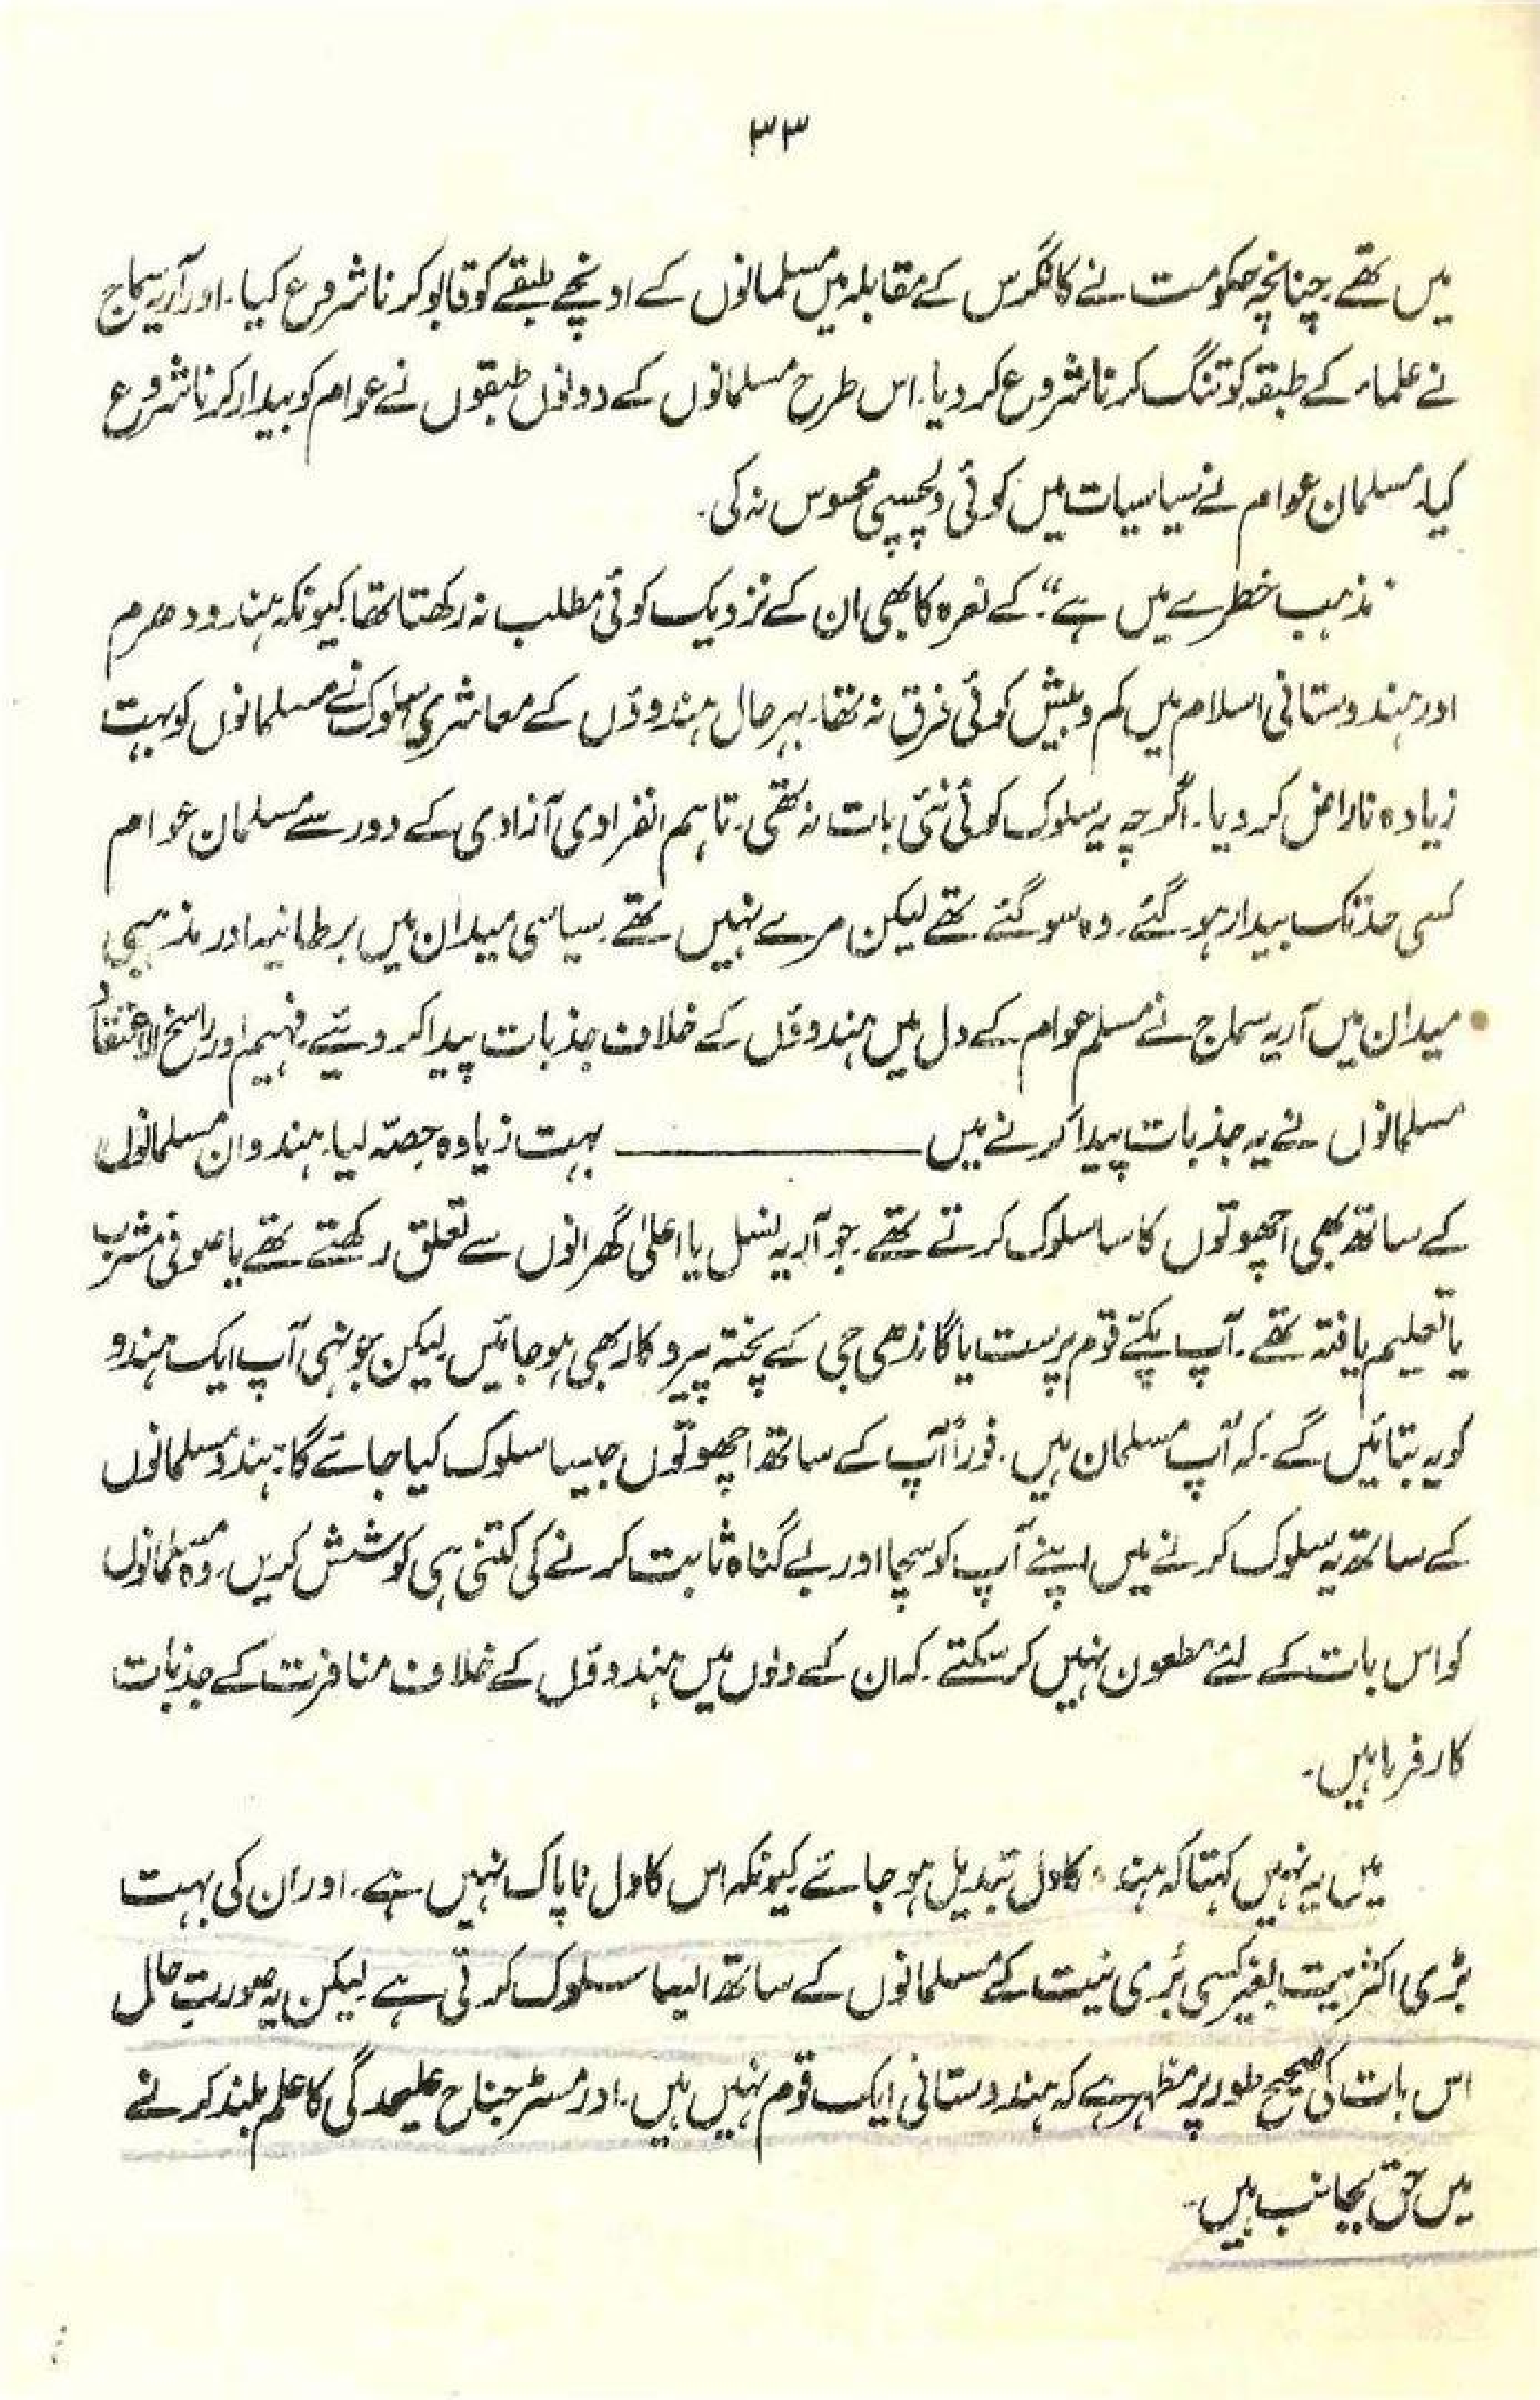 ۳۳
میں تھے۔ چنانچہ حکومت نے کانگرس کے مقابلہ میں مسلمانوں کے اونچے طبقے کو قابو کرنا شروع کیا۔ اور آریہ سماج
نے علماء کے طبقہ کو تنگ کرنا شروع کر دیا۔ اس طرح مسلمانوں کے دونوں طبقوں نے عوام کو بیدار کرنا شروع
کیا۔ مسلمان عوام نے سیاسیات میں کوئی دلچسپی محسوس نہ کی۔
"مذہب خطرے میں ہے"۔ کے نعرہ کا بھی ان کے نزدیک کوئی مطلب نہ رکھتا تھا۔ کیونکہ ہندو دھرم
اور ہندوستانی اسلام میں کم و بیش کوئی فرق نہ تھا۔ بہر حال ہندوؤں کے معاشری سلوک نے مسلمانوں کو بہت
زیادہ ناراض کر دیا۔ اگرچہ یہ سلوک کوئی نئی بات نہ تھی۔ تاہم انفرادی آزادی کے دور سے مسلمان عوام
کسی حد تک بیدار ہو گئے۔ وہ سو گئے تھے لیکن مرے نہیں تھے۔ سیاسی میدان میں برطانیہ اور مذہبی
میدان میں آریہ سماج نے مسلم عوام کے دل میں ہندوؤں کے خلاف جذبات پیدا کر دیئے۔ فہیم اور راسخ الاعتقاد
مسلمانوں نے یہ جذبات پیدا کرنے میں ـــــــــــــ بہت زیادہ حصّہ لیا۔ ہندو ان مسلمانوں
کے ساتھ بھی اچھوتوں کا سا سلوک کرتے تھے۔ جو آریہ نسل یا اعلیٰ گھرانوں سے تعلق رکھتے تھے یا صوفی مشرب
یا تعلیم یافتہ تھے۔ آپ پکّے قوم پرست یا گاندھی جی کے پختہ پیروکار بھی ہو جائیں لیکن جونہی آپ ایک ہندو
کو یہ بتائیں گے۔ کہ آپ مسلمان ہیں۔ فوراً آپ کے ساتھ اچھوتوں جیسا سلوک کیا جائے گا۔ ہندو مسلمانوں
کے ساتھ یہ سلوک کرنے میں اپنے آپ کو سچا اور بے گناہ ثابت کرنے کی کتنی ہی کوشش کریں۔ وہ مسلمانوں
کو اس بات کے لئے مطعون نہیں کر سکتے۔ کہ ان کے دلوں میں ہندوؤں کے خلاف منافرت کے جذبات
کارفرما ہیں۔
میں یہ نہیں کہتا کہ ہندو کا دل تبدیل ہو جائے۔ کیونکہ اس کا دل ناپاک نہیں ہے۔ اور ان کی بہت
بڑی اکثریت بغیر کسی بُری نیت کے مسلمانوں کے ساتھ ایسا سلوک کرتی ہے۔ لیکن یہ صورتِ حال
اس بات کی صحیح طور پر مظہر ہے کہ ہندوستانی ایک قوم نہیں ہیں۔ اور مسٹر جناح علیحدگی کا علم بلند کرنے
میں حق بجانب ہیں۔